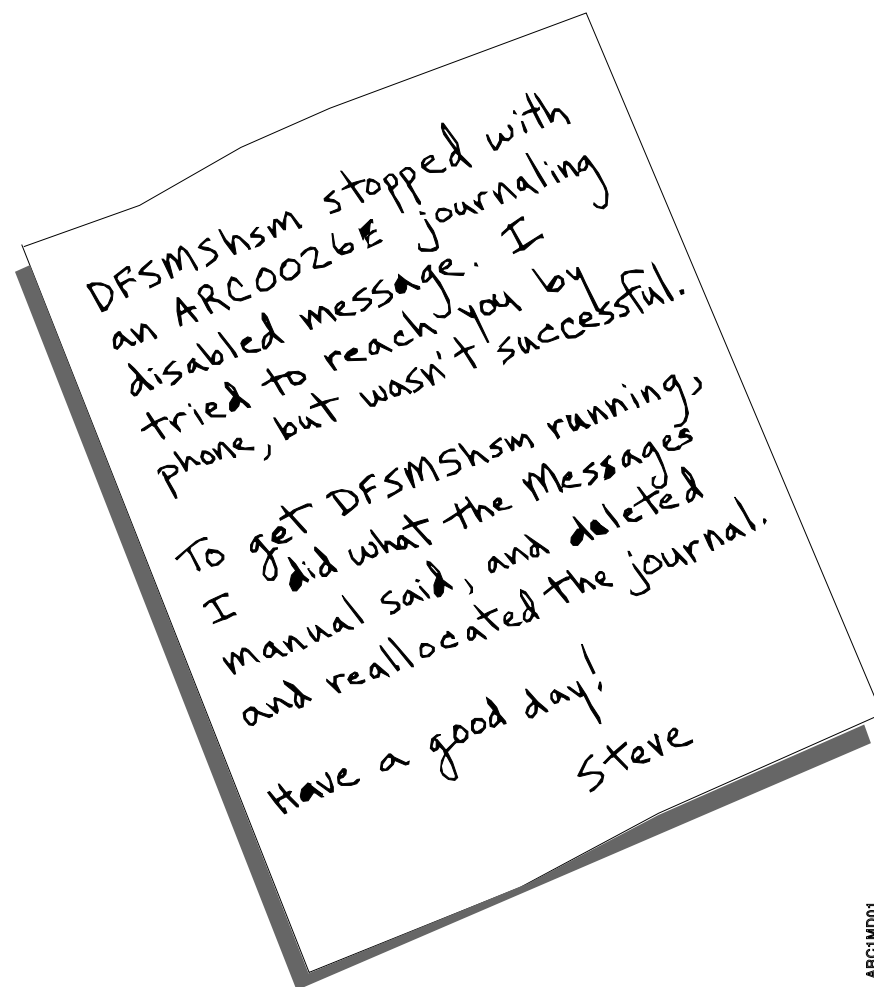 DFSMShsm stopped with
an ARC0026E journaling
disabled message. I
tried to reach you by
phone, but wasn't successful.
To get DFSMShsm running,
I did what the Messages
manual said, and deleted
and reallocated the journal.
Have a good day!
Steve
ARC1MD01